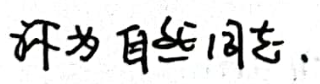 评为自然同志.